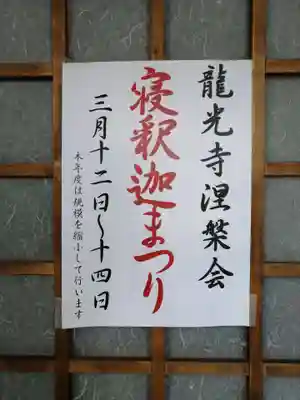 龍光寺涅槃会
寝釈迦まつり
三月十二日～十四日
本年度は規模を縮小して行います